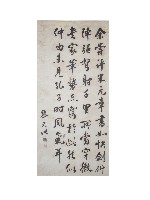 余嘗評米元章書如快劍斫
陣強弩射千里所當穿徹
書家筆勢亦窮於此然似
仲由未見孔子時風氣耳